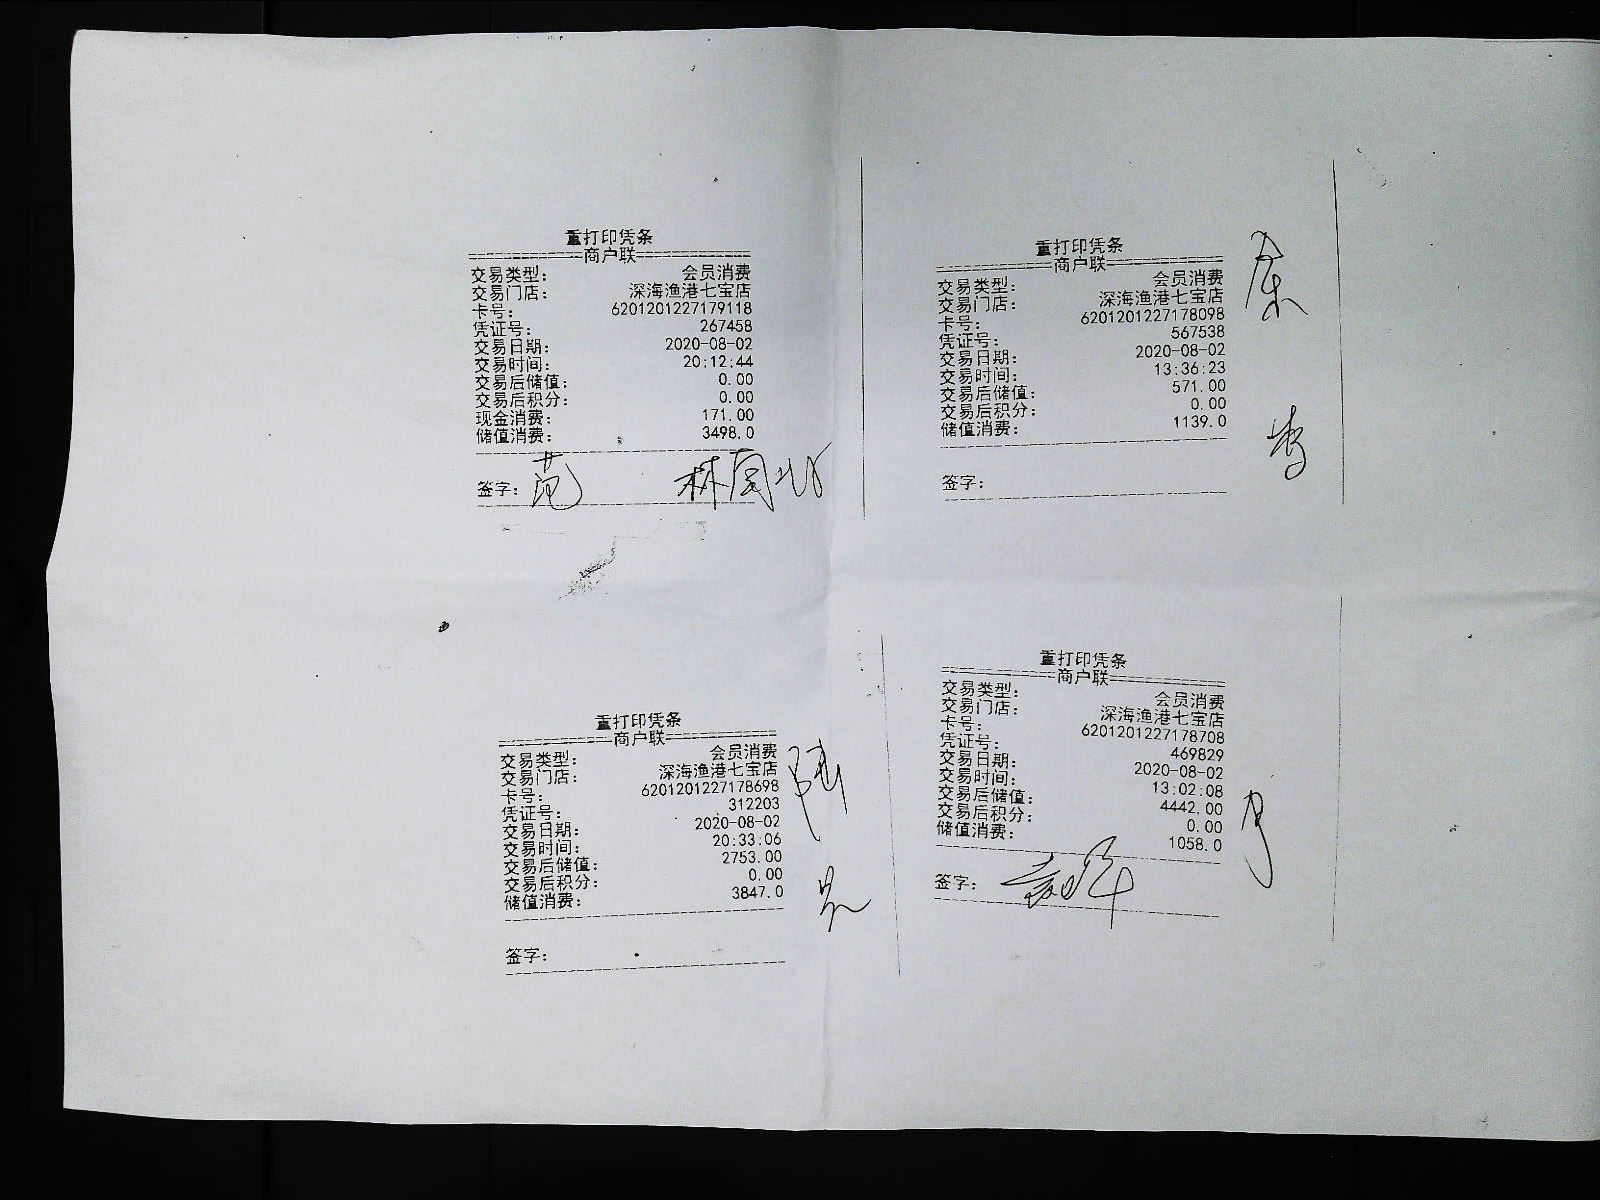 重打印凭条
================商户联================
交易类型: 会员消费
交易门店: 深海渔港七宝店
卡号: 6201201227179118
凭证号: 267458
交易日期: 2020-08-02
交易时间: 20:12:44
交易后储值: 0.00
交易后积分: 0.00
现金消费: 171.00
储值消费: 3498.0
签字: 范
重打印凭条
================商户联================
交易类型: 会员消费
交易门店: 深海渔港七宝店
卡号: 6201201227178098
凭证号: 567538
交易日期: 2020-08-02
交易时间: 13:36:23
交易后储值: 571.00
交易后积分: 0.00
储值消费: 1139.0
签字:
重打印凭条
================商户联================
交易类型: 会员消费
交易门店: 深海渔港七宝店
卡号: 6201201227178698
凭证号: 312203
交易日期: 2020-08-02
交易时间: 20:33:06
交易后储值: 2753.00
交易后积分: 0.00
储值消费: 3847.0
签字:
重打印凭条
================商户联================
交易类型: 会员消费
交易门店: 深海渔港七宝店
卡号: 6201201227178708
凭证号: 469829
交易日期: 2020-08-02
交易时间: 13:02:08
交易后储值: 4442.00
交易后积分: 0.00
储值消费: 1058.0
签字: